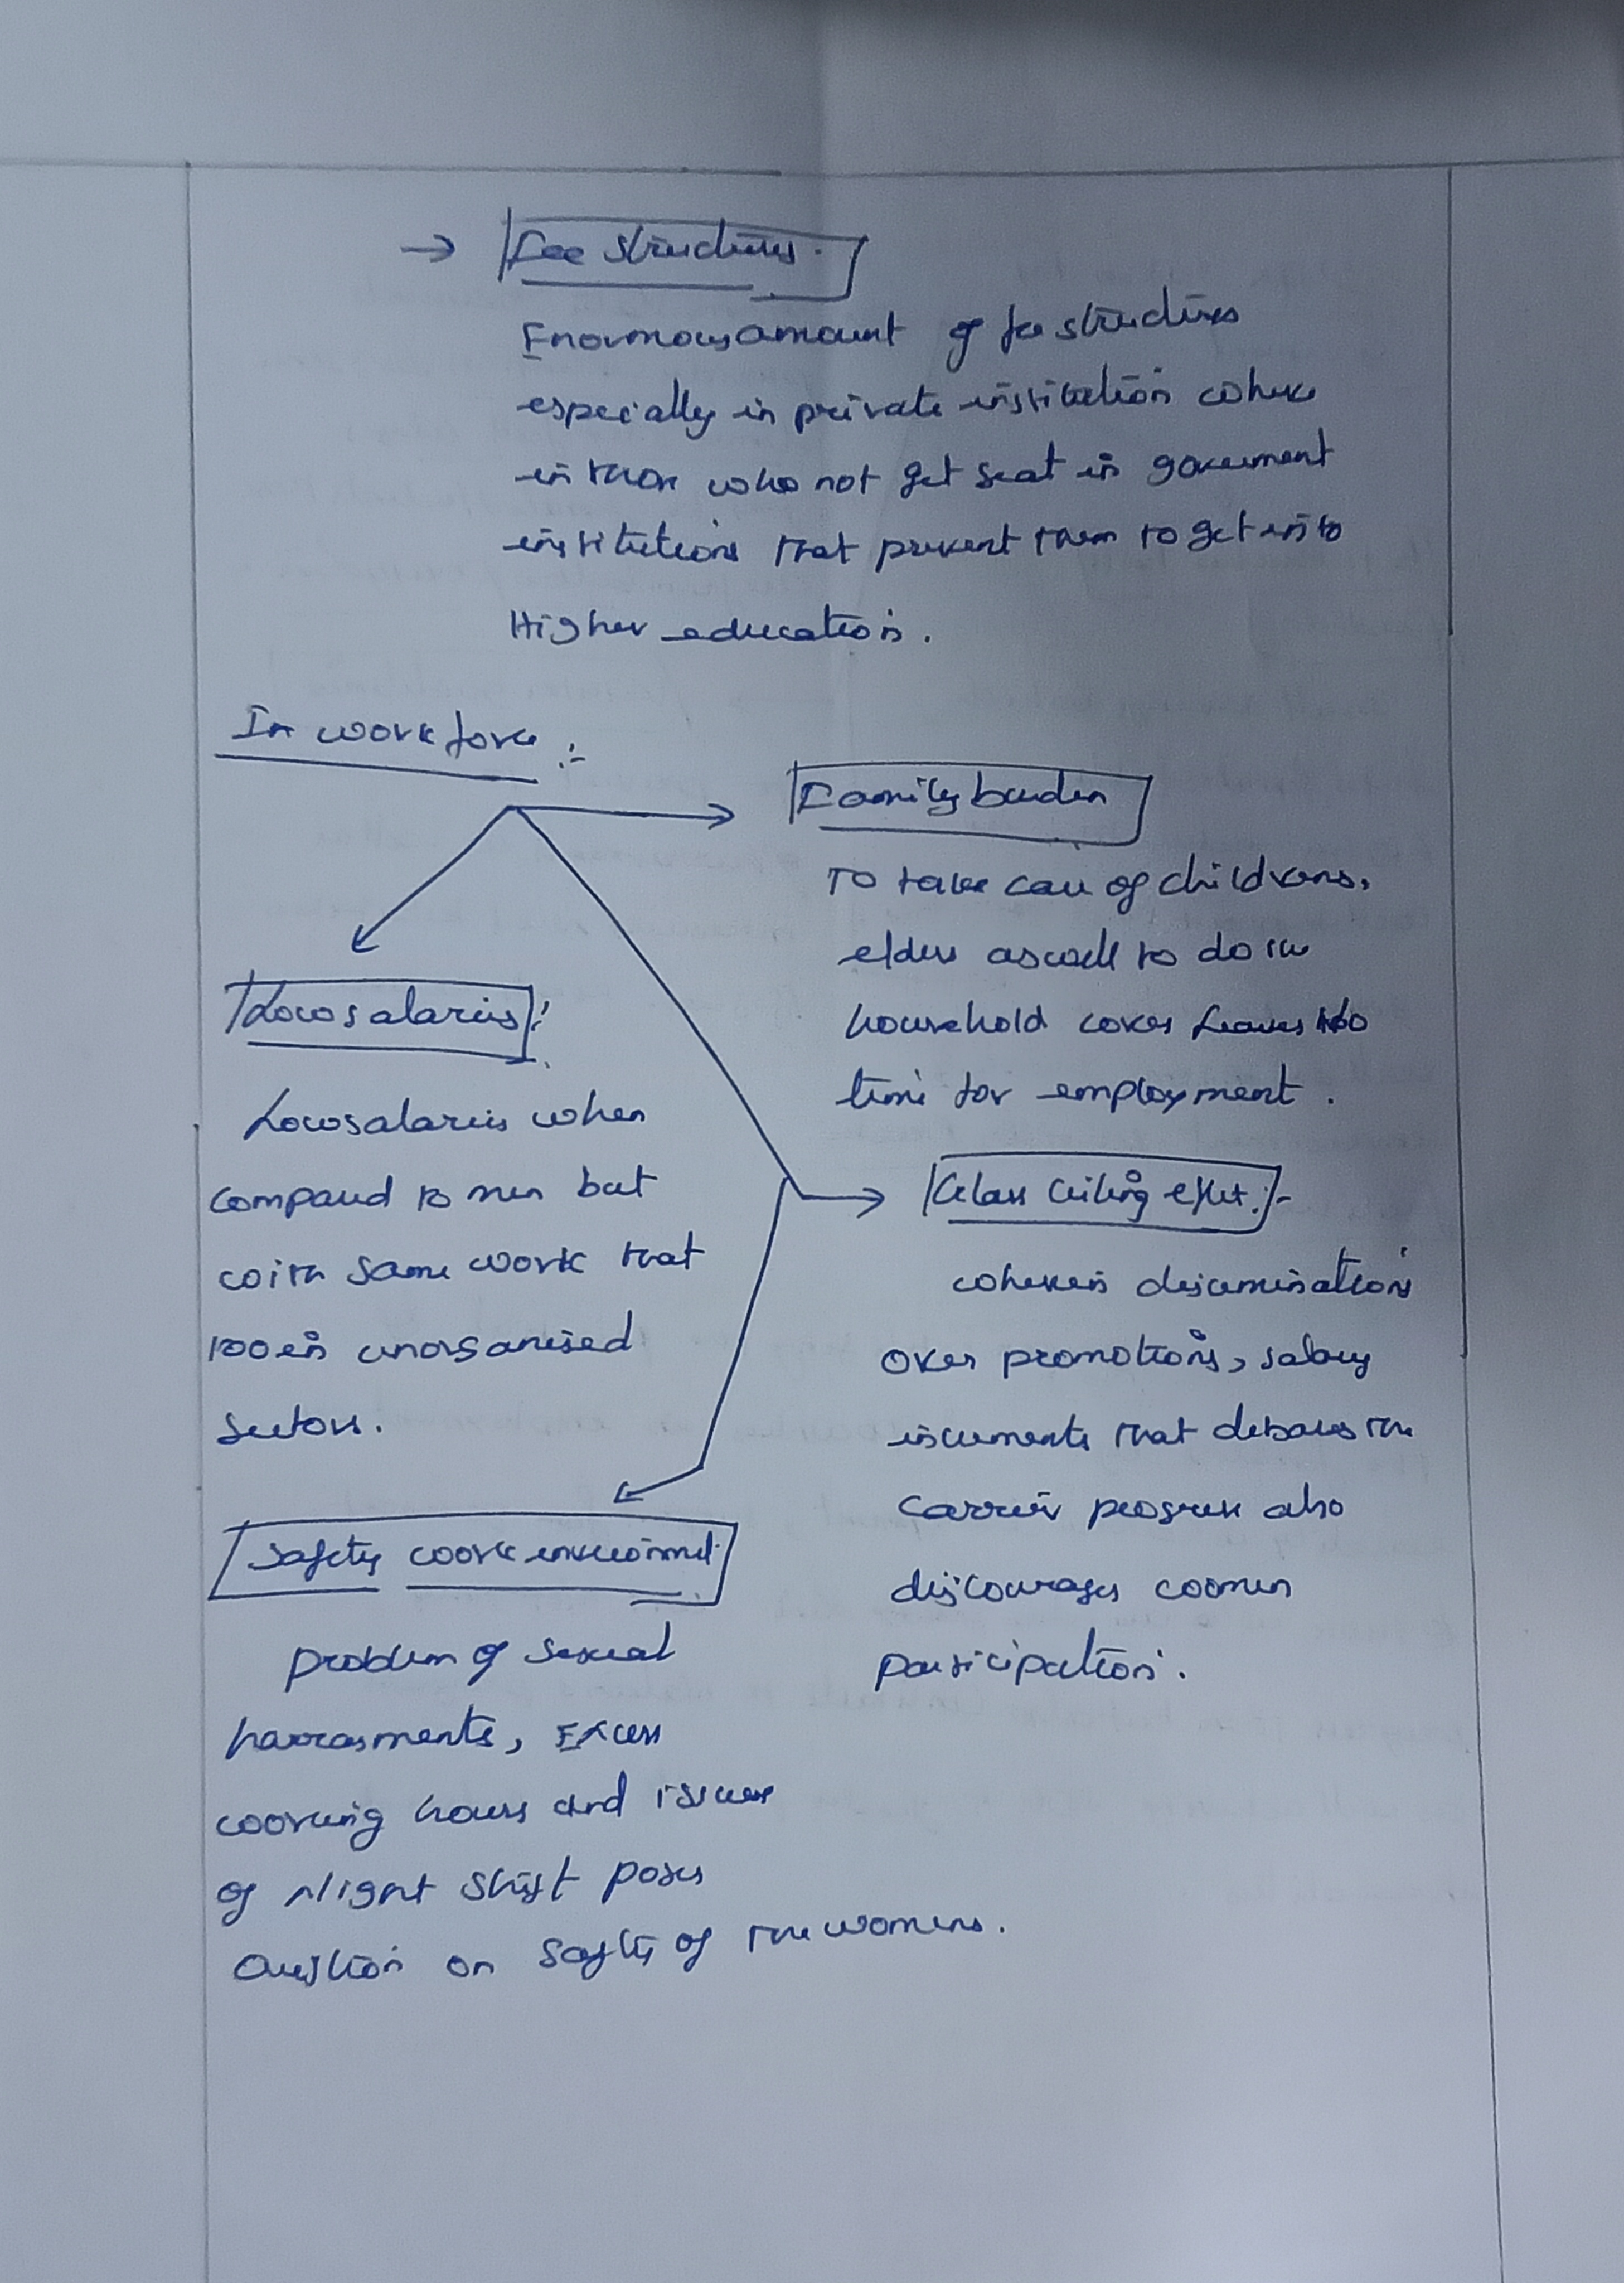 → Fee structures.
Enormous amount of fee structures
especially in private institution where
in those who not get seat in government
institutions that prevent them to get into
Higher education.
In workforce :-
Family burden
To take care of childrens,
elders as well to do the
household works leaves no
time for employment.
Low salaries :
Low salaries when
compared to men but
with same work that
too in unorganised
sectors.
Glass ceiling effect :-
wherein discrimination
over promotions, salary
increments that debars the
carrier progress also
discourages women
participation.
Safety work environment.
problem of sexual
harrasments, Excess
working hours and issues
of Night shift poses
Question on safety of the womens.